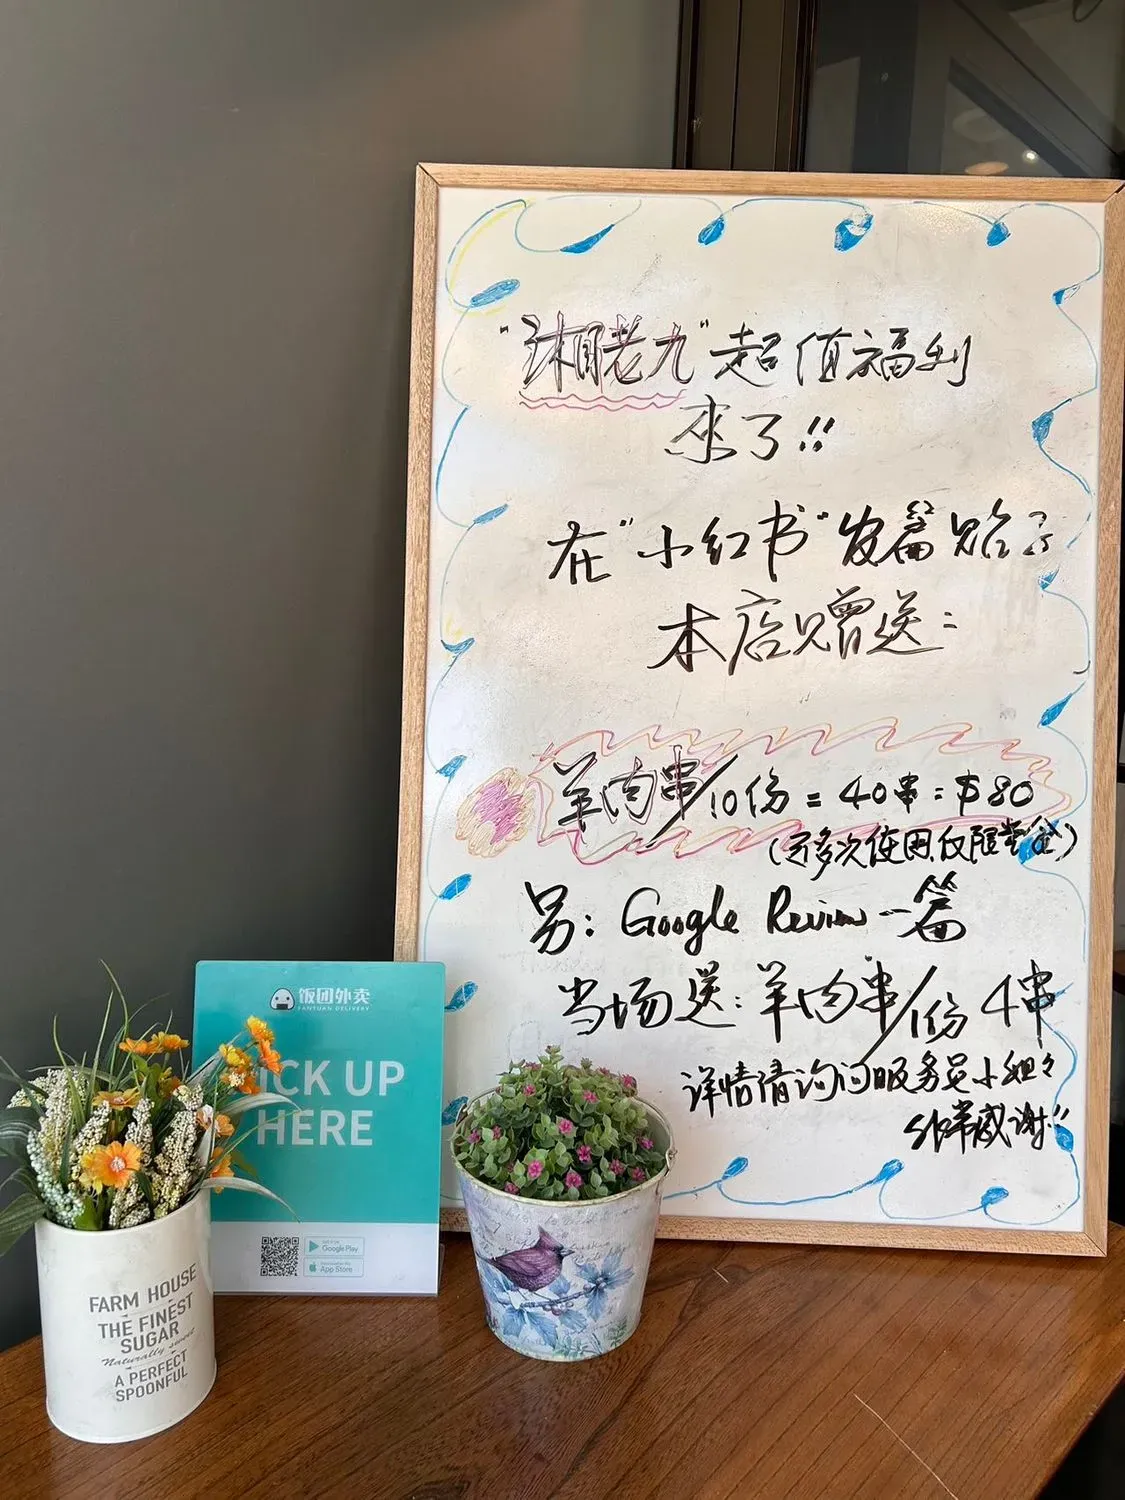 "湘老九"超值福利
來了!!
在"小红书"发篇贴子
本店赠送:
羊肉串/10份=40串=$80
(可多次使用,仅限堂食)
另: Google Review 一篇
当场送:羊肉串/1份 4串
详情请询问服务员小姐々
非常感谢!!
饭团外卖
FANTUAN DELIVERY
PICK UP
HERE
Google Play
App Store
FARM HOUSE
THE FINEST
SUGAR
Naturally sweet
A PERFECT
SPOONFUL